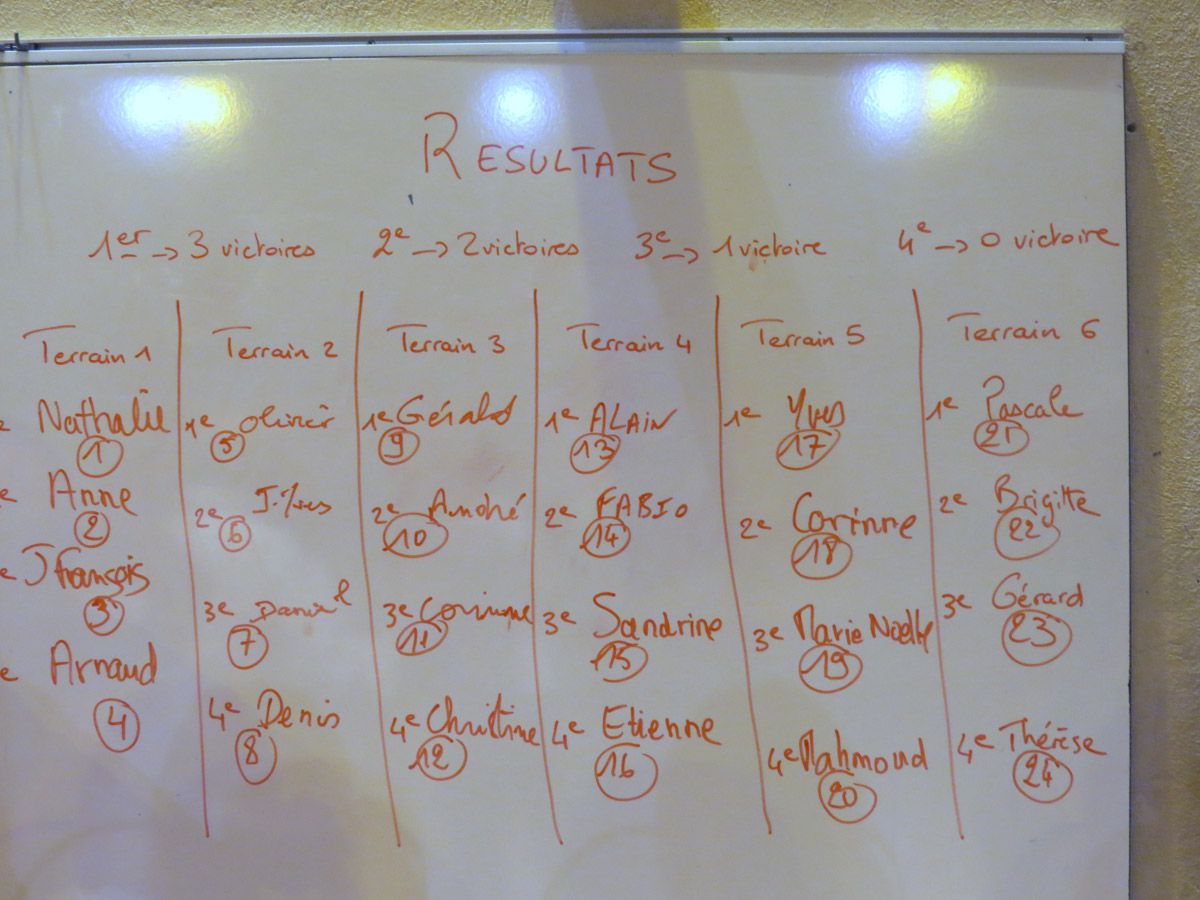 RESULTATS
1er -> 3 victoires 2e -> 2 victoires 3e -> 1 victoire 4e -> 0 victoire
Terrain 1
Nathalie
1
e Anne
2
e J François
3
e Arnaud
4
Terrain 2
1e Olivier
5
2e J.Yves
6
3e Daniel
7
4e Denis
8
Terrain 3
1e Gérald
9
2e André
10
3e Corinne
11
4e Christine
12
Terrain 4
1e ALAIN
13
2e FABIO
14
3e Sandrine
15
4e Etienne
16
Terrain 5
1e Yves
17
2e Corinne
18
3e Marie Noelle
19
4e Mahmoud
20
Terrain 6
1e Pascale
21
2e Brigitte
22
3e Gérard
23
4e Thérèse
24